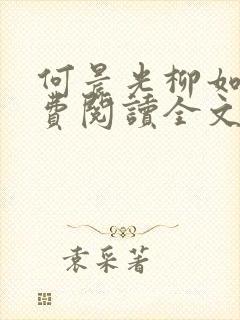 何晨光柳如
費閱讀全文
袁采著